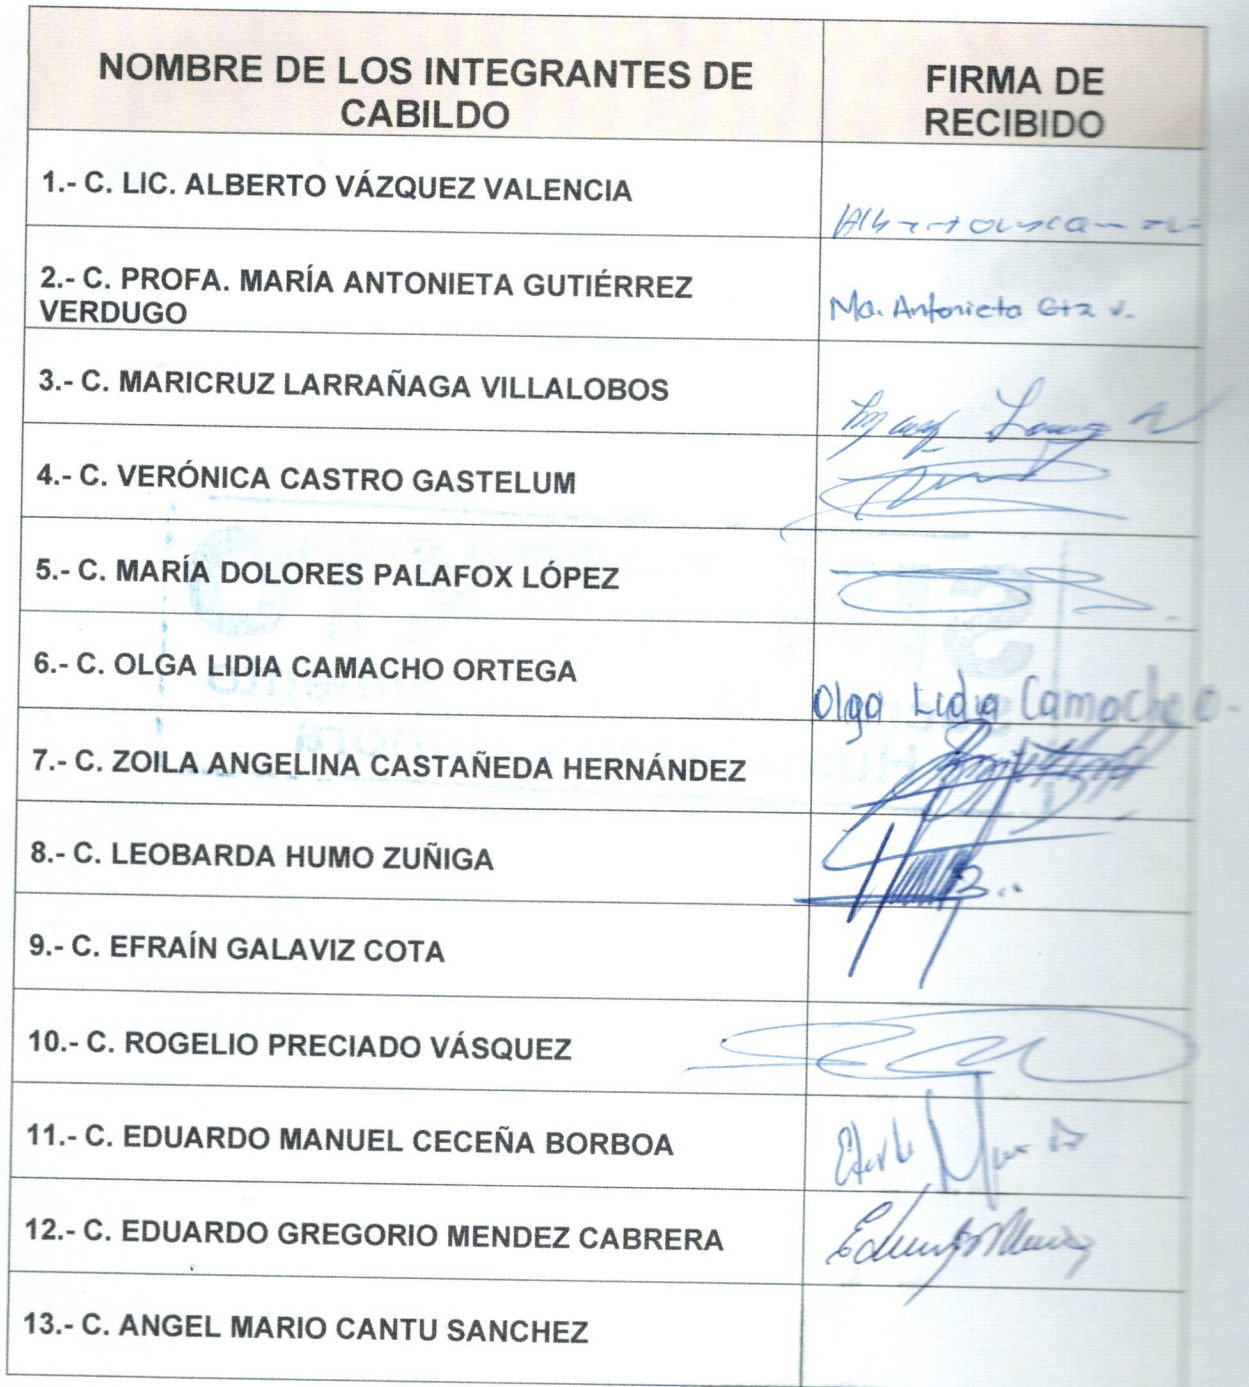 NOMBRE DE LOS INTEGRANTES DE
CABILDO
FIRMA DE
RECIBIDO
1.- C. LIC. ALBERTO VÁZQUEZ VALENCIA
2.- C. PROFA. MARÍA ANTONIETA GUTIÉRREZ
VERDUGO
Ma. Antonieta Gtz V.
3.- C. MARICRUZ LARRAÑAGA VILLALOBOS
4.- C. VERÓNICA CASTRO GASTELUM
5.- C. MARÍA DOLORES PALAFOX LÓPEZ
6.- C. OLGA LIDIA CAMACHO ORTEGA
Olga Lidia Camacho O-
7.- C. ZOILA ANGELINA CASTAÑEDA HERNÁNDEZ
8.- C. LEOBARDA HUMO ZUÑIGA
9.- C. EFRAÍN GALAVIZ COTA
10.- C. ROGELIO PRECIADO VÁSQUEZ
11.- C. EDUARDO MANUEL CECEÑA BORBOA
12.- C. EDUARDO GREGORIO MENDEZ CABRERA
13.- C. ANGEL MARIO CANTU SANCHEZ